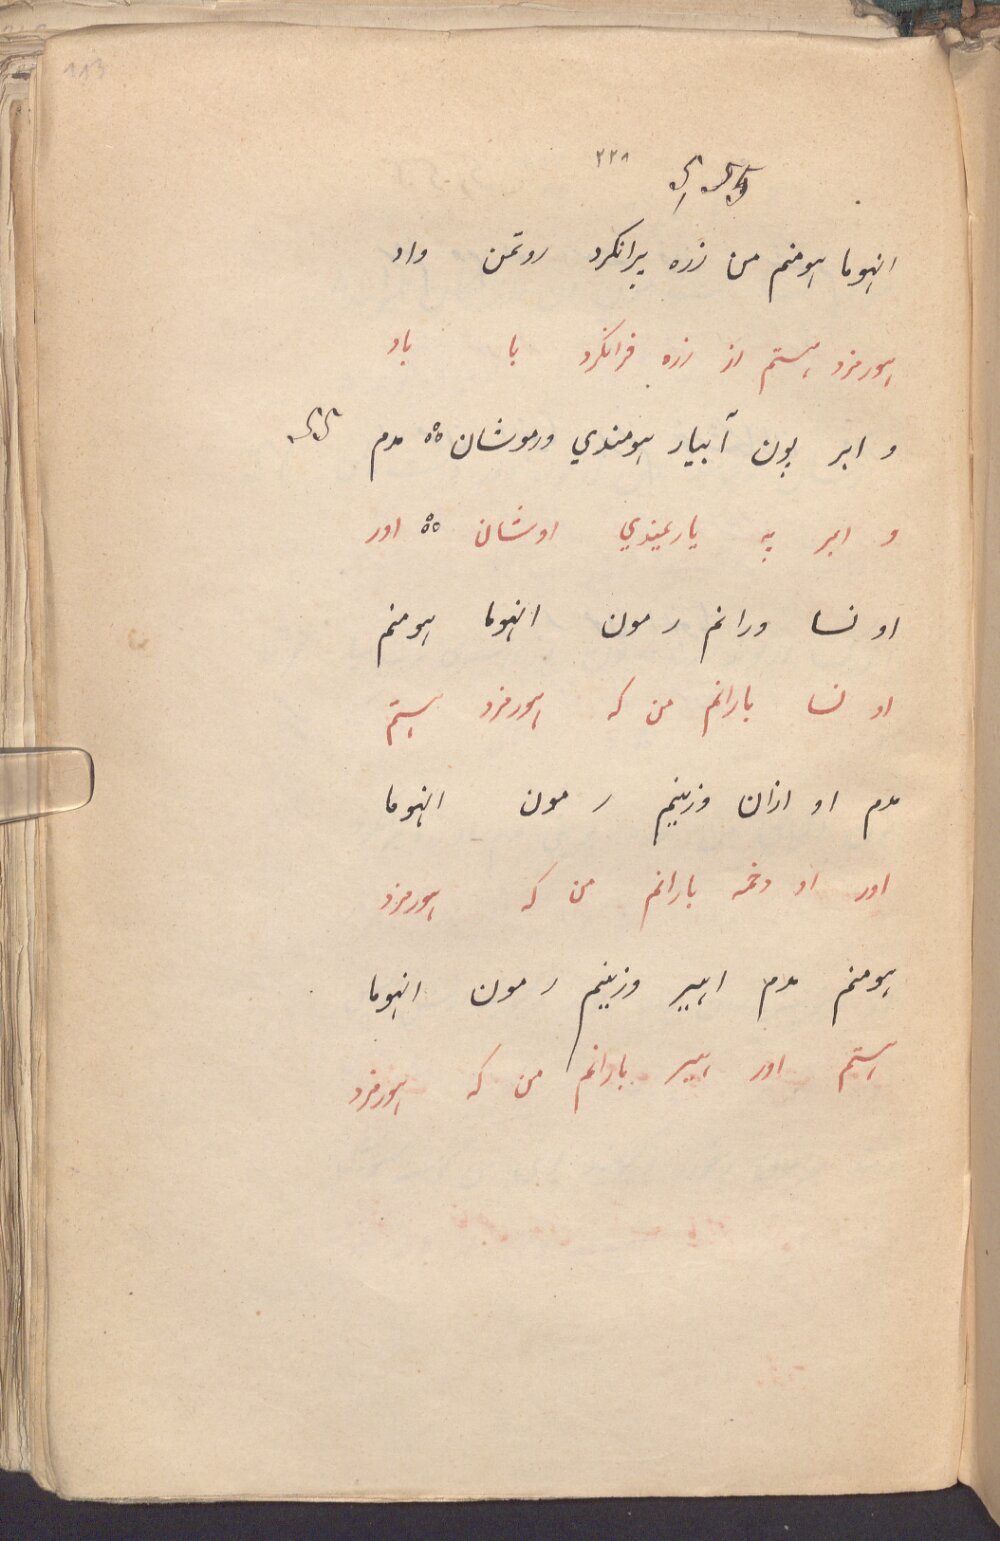 ۲۲۸
انهوما هومنم من زره پرانکرد روتمن واد
هورمزد هستم از زره فرانکرد با باد
و ابر پون آبیار هومندي ورموشان ٥٥ مدم
و ابر په یارمیندي اوشان ٥٥ اور
او نسا ورانم ر مون انهوما هومنم
او نسا بارانم من که هورمزد هستم
مدم او ازان وزینم ر مون انهوما
اور او دخمه بارانم من که هورمزد
هومنم مدم اهیر وزینم ر مون انهوما
هستم اور هیر بارانم من که هورمزد